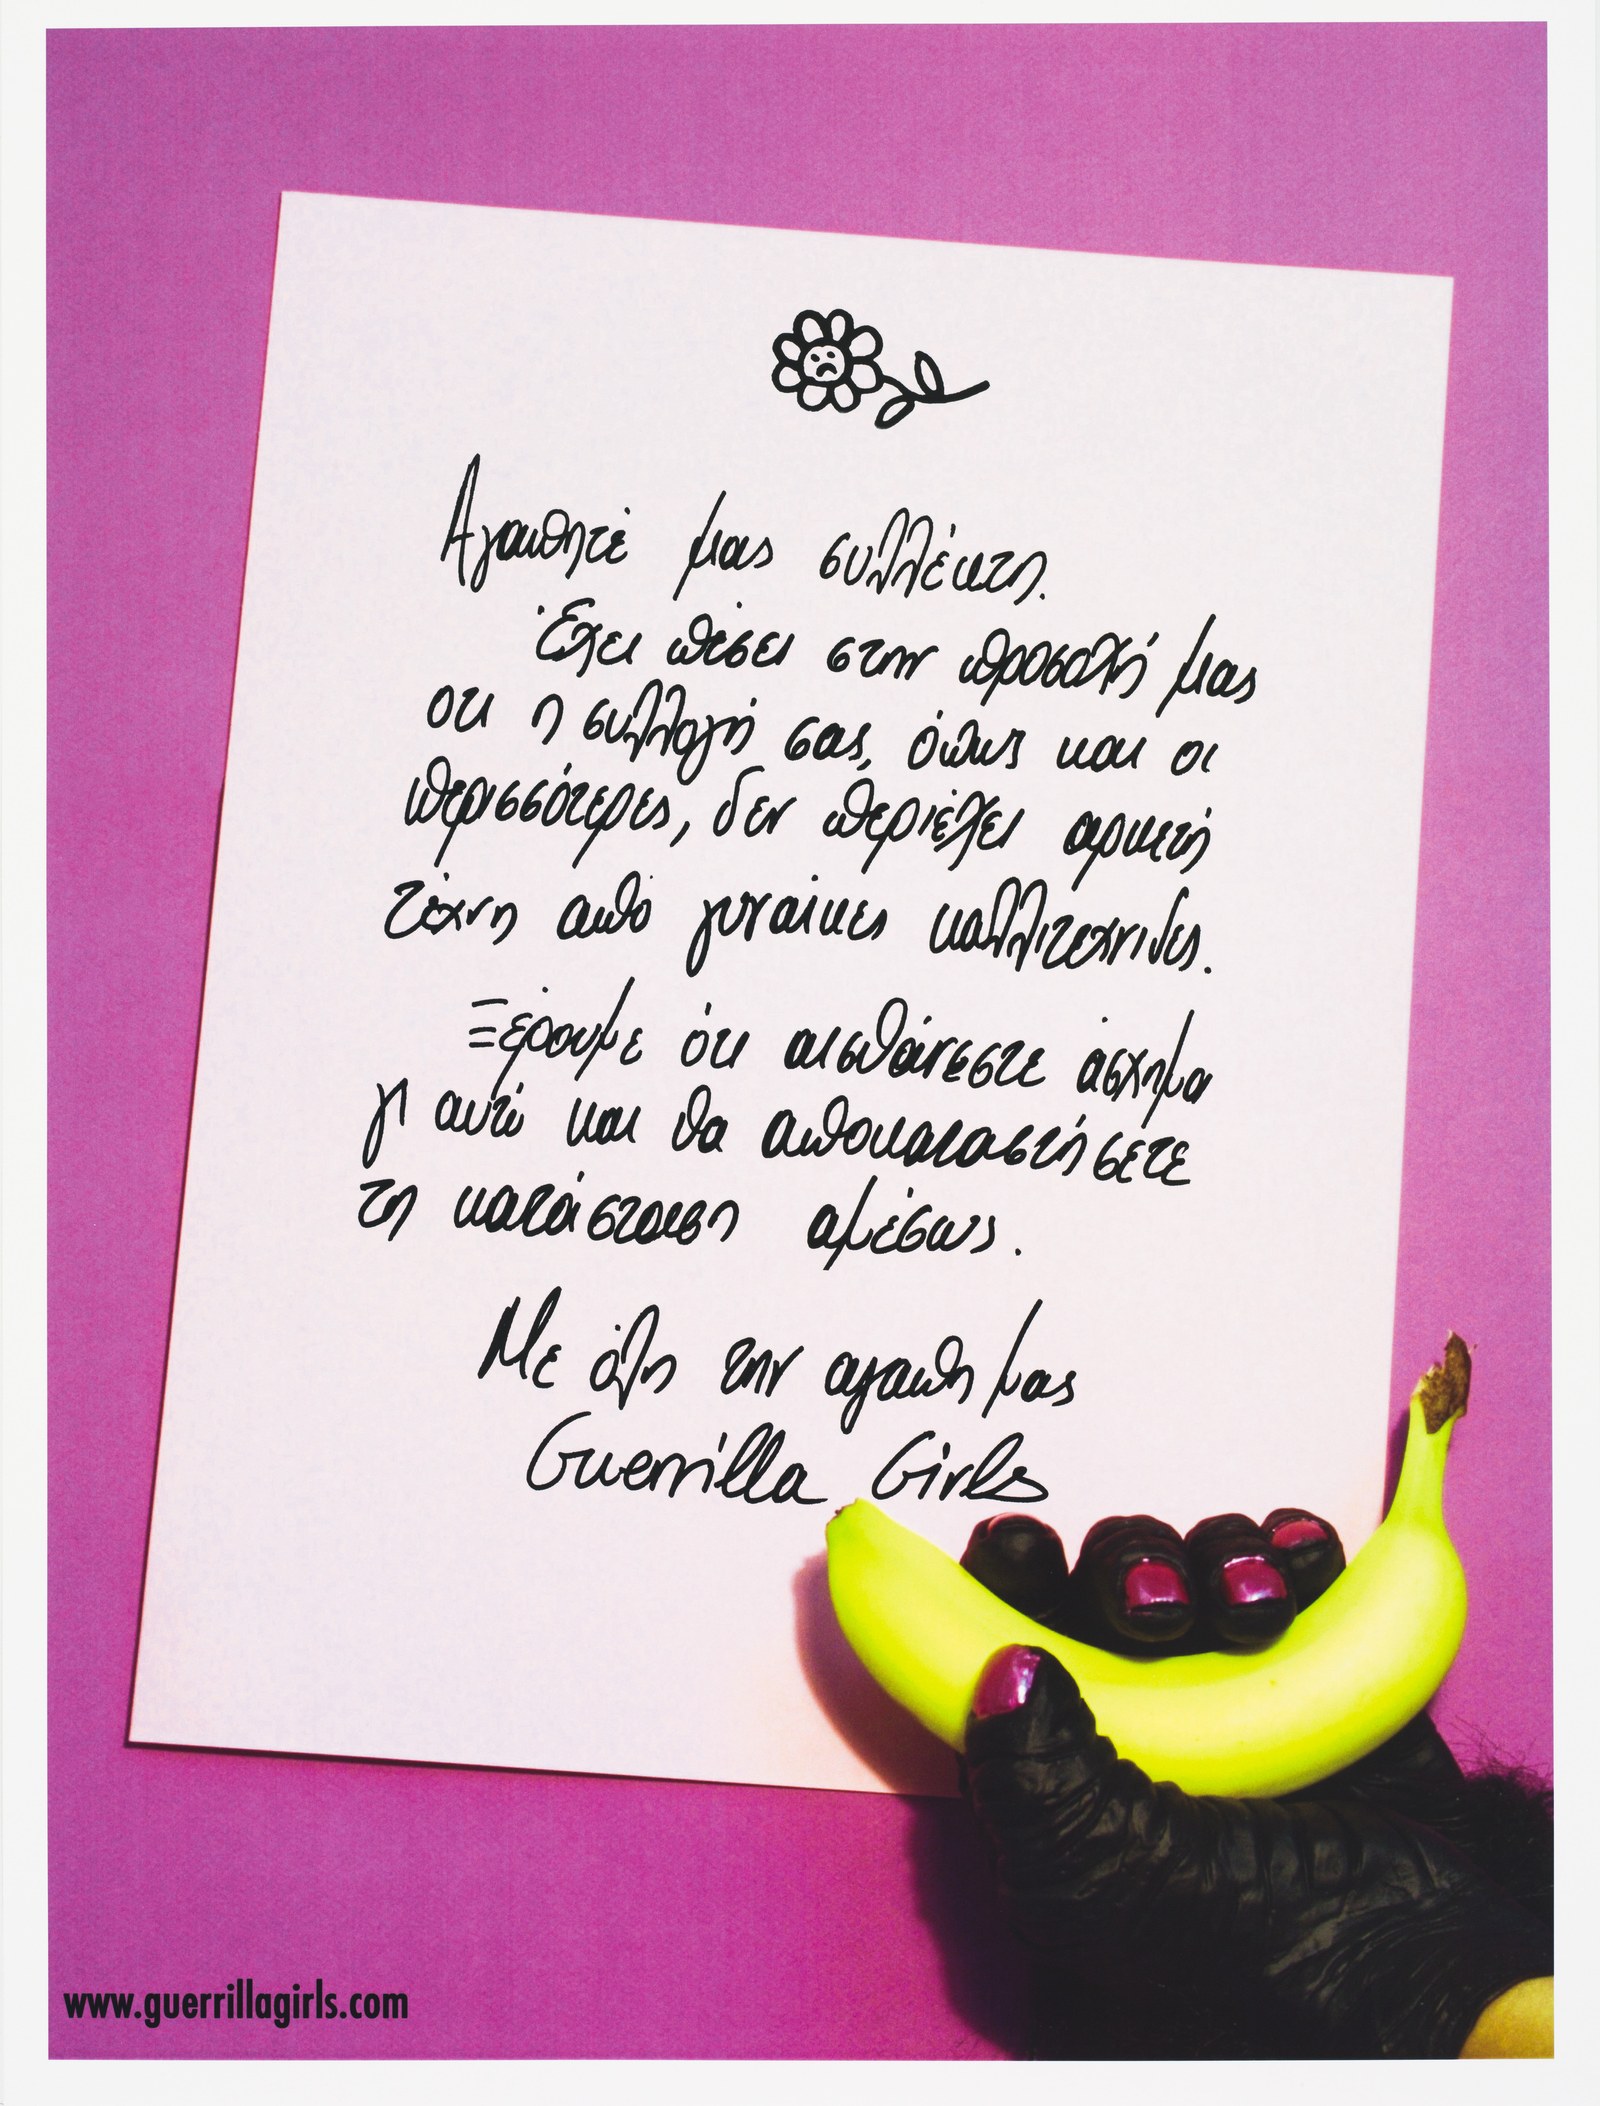 Αγαπητέ μας συλλέκτη.
Έχει πέσει στην προσοχή μας
οτι η συλλογή σας, όπως και οι
περισσότερες, δεν περιέχει αρκετή
τέχνη από γυναίκες καλλιτέχνιδες.
Ξέρουμε ότι αισθάνεστε άσχημα
γι αυτό και θα αποκαταστήσετε
τη κατάσταση αμέσως.
Με όλη την αγάπη μας
Guerrilla Girls
www.guerrillagirls.com